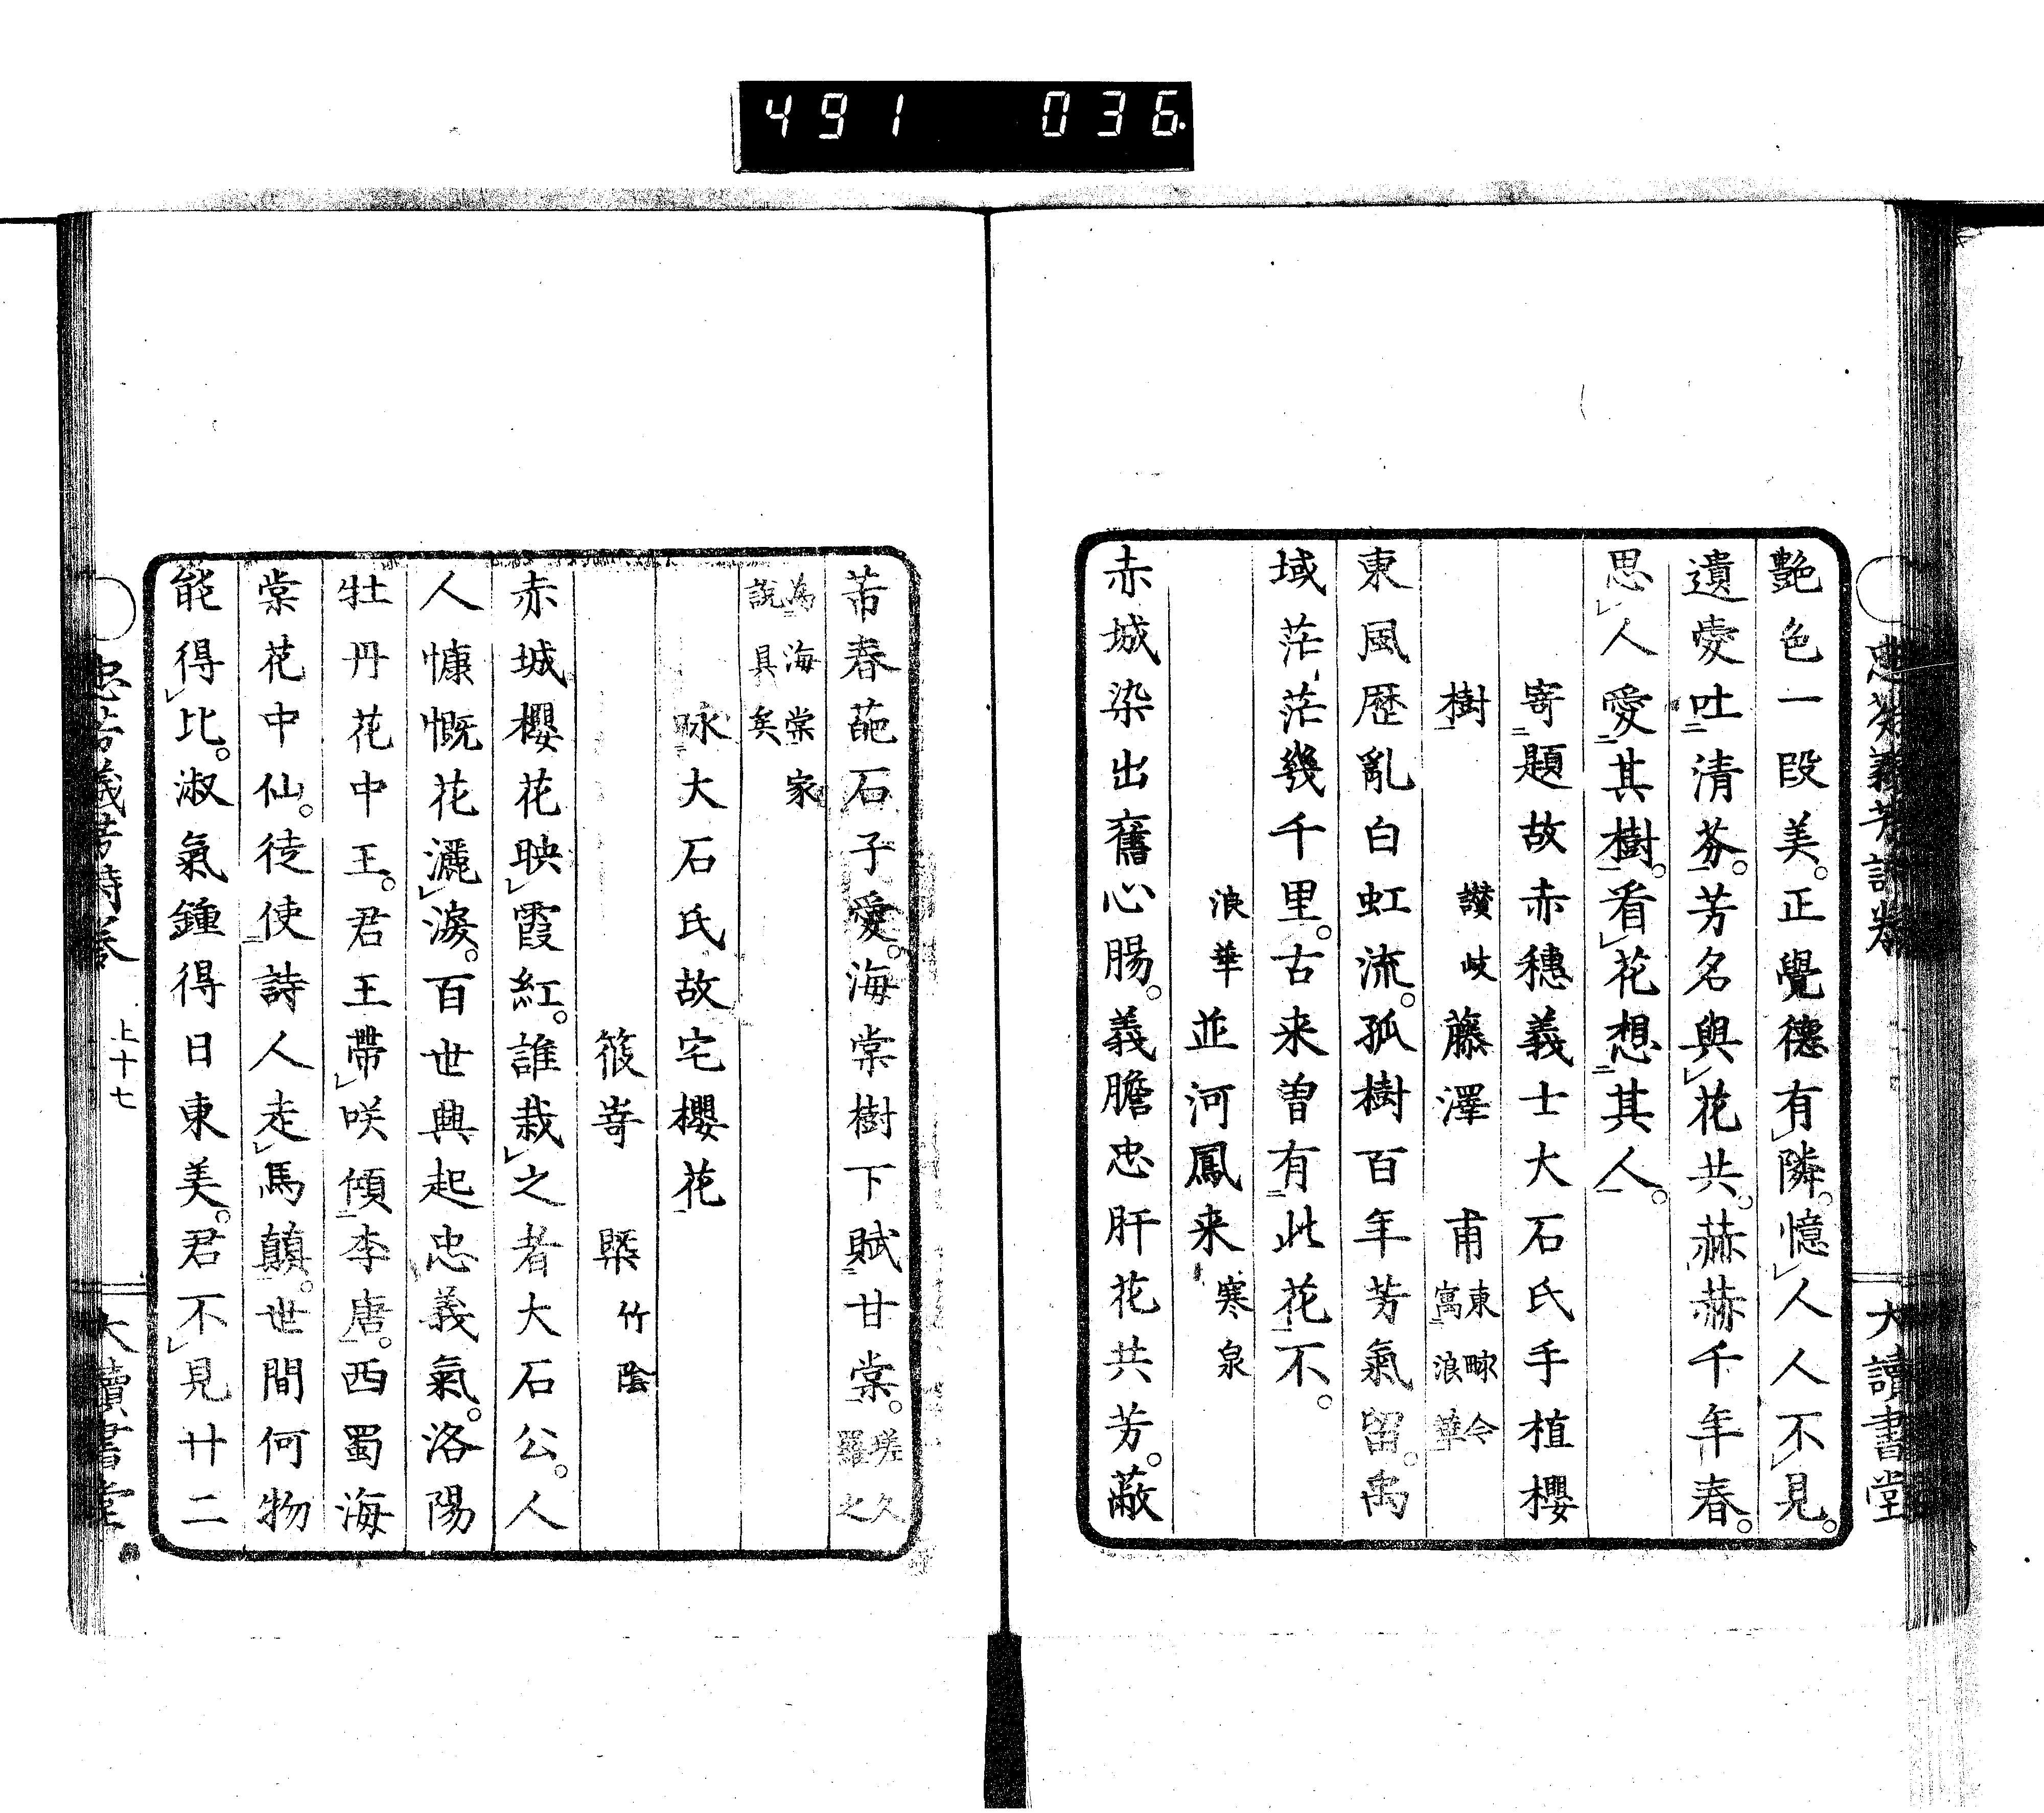 491 036
忠芬義芳詩卷
大讀書堂
艶色一段美。正覺德有隣。憶人人不見。
遺愛吐清芬。芳名與花共。赫赫千年春。
思人愛其樹。看花想其人。
寄題故赤穗義士大石氏手植櫻
樹 讃岐 藤澤 甫 東畡今寓浪華
東風歴亂白虹流。孤樹百年芳氣留。禹
域茫茫幾千里。古来曽有此花不。
浪華 並河鳳来 寒泉
赤城染出舊心腸。義膽忠肝花共芳。蔽
芾春葩石子愛。海棠樹下賦甘棠。瑳久羅之
為海棠家説具矣
咏大石氏故宅櫻花
筱嵜 槩 竹陰
赤城櫻花映霞紅。誰栽之者大石公。人
人慷慨花灑淚。百世興起忠義氣。洛陽
牡丹花中王。君王帶咲傾李唐。西蜀海
棠花中仙。徒使詩人走馬顛。世間何物
能得比。淑氣鍾得日東美。君不見廿二
忠芬義芳詩卷
上十七
大讀書堂